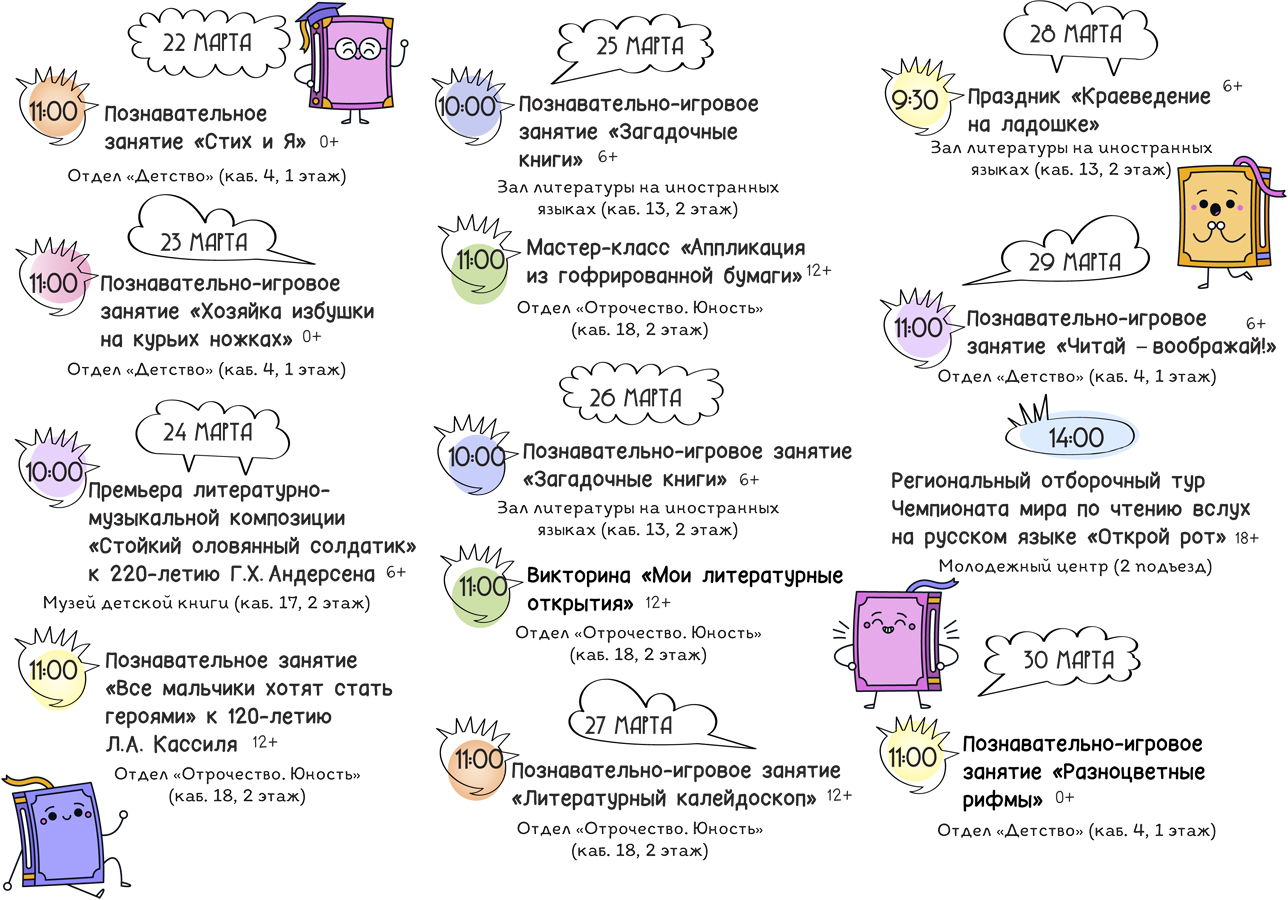 22 МАРТА
11:00
Познавательное
занятие «Стих и Я» 0+
Отдел «Детство» (каб. 4, 1 этаж)
23 МАРТА
11:00
Познавательно-игровое
занятие «Хозяйка избушки
на курьих ножках» 0+
Отдел «Детство» (каб. 4, 1 этаж)
24 МАРТА
10:00
Премьера литературно-
музыкальной композиции
«Стойкий оловянный солдатик»
к 220-летию Г.Х. Андерсена 6+
Музей детской книги (каб. 17, 2 этаж)
11:00
Познавательное занятие
«Все мальчики хотят стать
героями» к 120-летию
Л.А. Кассиля 12+
Отдел «Отрочество. Юность»
(каб. 18, 2 этаж)
25 МАРТА
10:00
Познавательно-игровое
занятие «Загадочные
книги» 6+
Зал литературы на иностранных
языках (каб. 13, 2 этаж)
11:00
Мастер-класс «Аппликация
из гофрированной бумаги» 12+
Отдел «Отрочество. Юность»
(каб. 18, 2 этаж)
26 МАРТА
10:00
Познавательно-игровое занятие
«Загадочные книги» 6+
Зал литературы на иностранных
языках (каб. 13, 2 этаж)
11:00
Викторина «Мои литературные
открытия» 12+
Отдел «Отрочество. Юность»
(каб. 18, 2 этаж)
27 МАРТА
11:00
Познавательно-игровое занятие
«Литературный калейдоскоп» 12+
Отдел «Отрочество. Юность»
(каб. 18, 2 этаж)
28 МАРТА
9:30
Праздник «Краеведение 6+
на ладошке»
Зал литературы на иностранных
языках (каб. 13, 2 этаж)
29 МАРТА
11:00
Познавательно-игровое 6+
занятие «Читай – воображай!»
Отдел «Детство» (каб. 4, 1 этаж)
14:00
Региональный отборочный тур
Чемпионата мира по чтению вслух
на русском языке «Открой рот» 18+
Молодежный центр (2 подъезд)
30 МАРТА
11:00
Познавательно-игровое
занятие «Разноцветные
рифмы» 0+
Отдел «Детство» (каб. 4, 1 этаж)